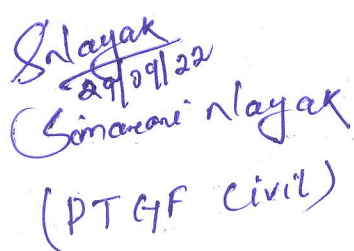 SNayak
29/09/22
(Simarani Nayak
(PTGF Civil)